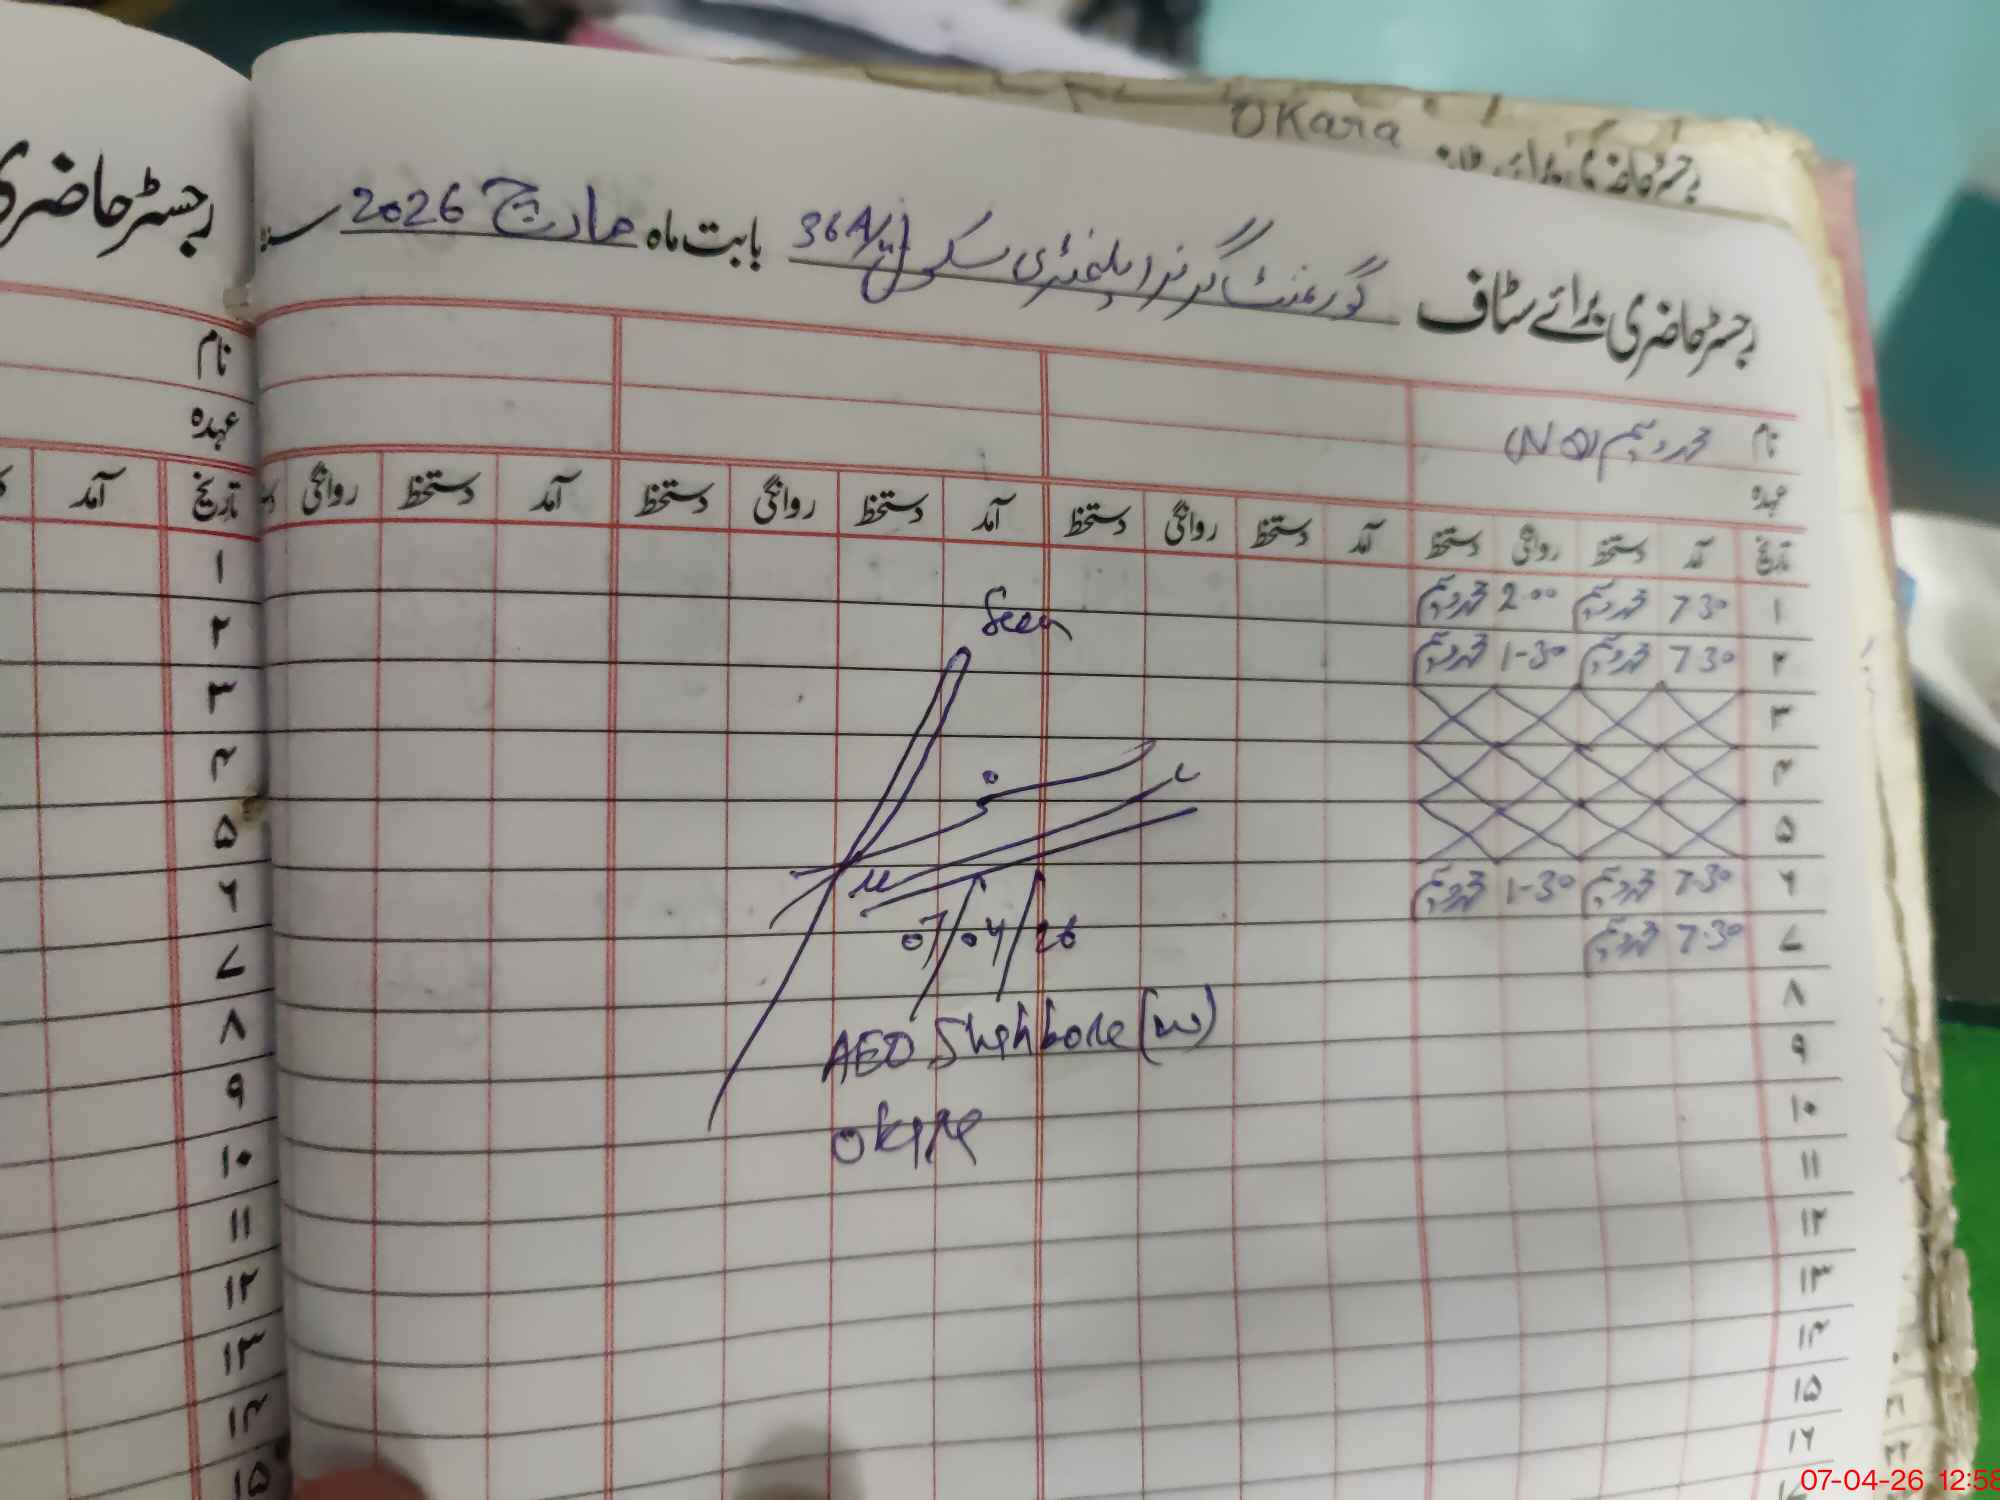 OKara
رجسٹر حاضری برائے سٹاف گورنمنٹ گرلز ایلیمنٹری سکول 36A/ بابت ماہ مارچ 2026
رجسٹر حاضری
نام محمد وسیم (NQ)
عہدہ
تاریخ آمد دستخط روانگی دستخط آمد دستخط روانگی دستخط آمد دستخط روانگی دستخط آمد دستخط روانگی
۱ 7.30 محمد وسیم 2.00 محمد وسیم
۲ 7.30 محمد وسیم 1-30 محمد وسیم
۳
۴
۵
۶ 7.30 محمد وسیم 1-30 محمد وسیم
۷ 7.30 محمد وسیم
۸
۹
۱۰
۱۱
۱۲
۱۳
۱۴
۱۵
۱۶
Seen
07/04/26
AEO Shahbore (W)
Okara
نام
عہدہ
تاریخ آمد
۱
۲
۳
۴
۵
۶
۷
۸
۹
۱۰
۱۱
۱۲
۱۳
۱۴
۱۵
07-04-26 12:58